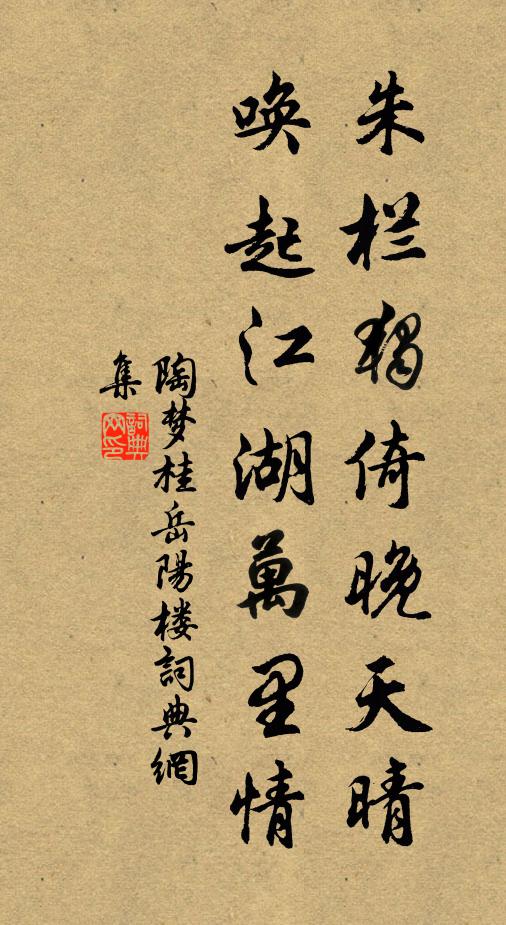 朱栏獨倚晚天晴
唤起江湖萬里情
陶梦桂岳陽楼詞典網
集
詞典網印